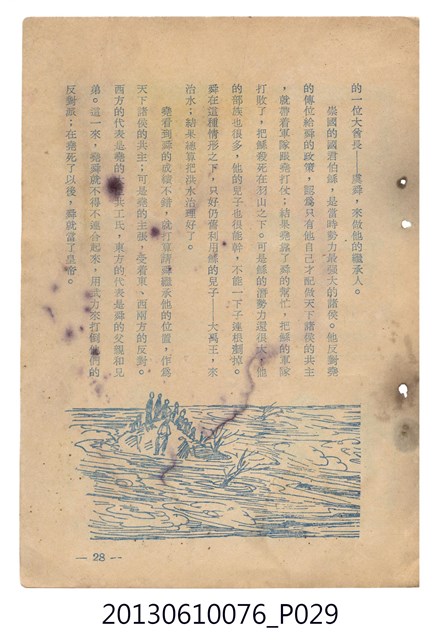 的一位大酋長——虞舜，來做他的繼承人。
崇國的國君伯鯀，是當時勢力最強大的諸侯。他反對堯
的傳位給舜的政策，認爲只有他自己才配做天下諸侯的共主
，就帶着軍隊跟堯打仗；結果堯靠了舜的幫忙，把鯀的軍隊
打敗了，把鯀殺死在羽山之下。可是鯀的潛勢力還很大，他
的部族也很多，他的兒子也很能幹，不能一下子連根剷掉。
舜在這種情形之下，只好仍舊利用鯀的兒子——大禹王，來
治水；結果總算把洪水治理好了。
堯看到舜的成績不錯，就打算請舜繼承他的位置，作爲
天下諸侯的共主；可是堯的主張，受着東、西兩方的反對。
西方的代表是堯的 共工氏，東方的代表是舜的父親和兄
弟。這一來，堯舜就不得不連合起來，用武力來打倒他們的
反對派；在堯死了以後，舜就當了皇帝。
— 28 —
20130610076_P029